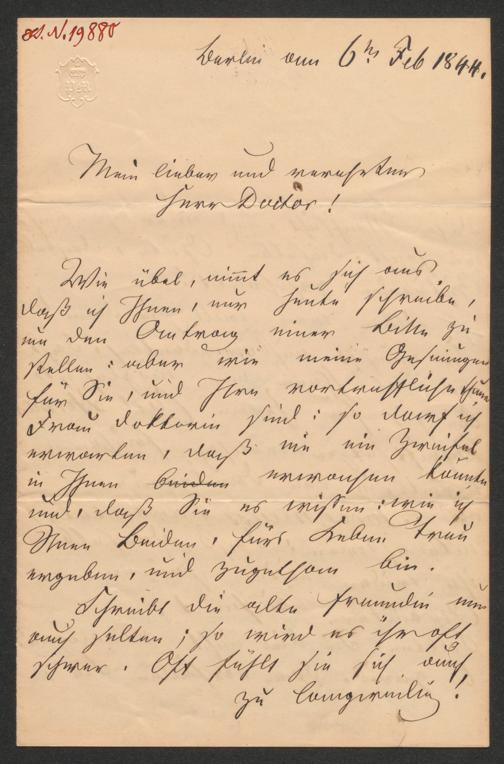 I.N. 19880
Berlin am 6ten Feb 1844.
Mein lieber und verehrter
Herr Doctor!
Wie übel, nimt es sich aus
daß ich Ihnen, nur heute schreibe,
um den Antrag einer Bitte zu
stellen: aber wie meine Gesinungen
für Sie, und Ihre vortreffliche
Frau Doktorin sind: so darf ich
erwarten, daß nie ein Zweifel
in Ihnen beiden erwachsen könnte
und, daß Sie es wissen: wie ich
Ihnen Beiden, fürs Leben treu
ergeben, und zugethan bin.
Schreibt die alte Freundin nun
auch selten; so wird es ihr oft
schwer. Oft fühlt sie sich auch
zu langweilig!